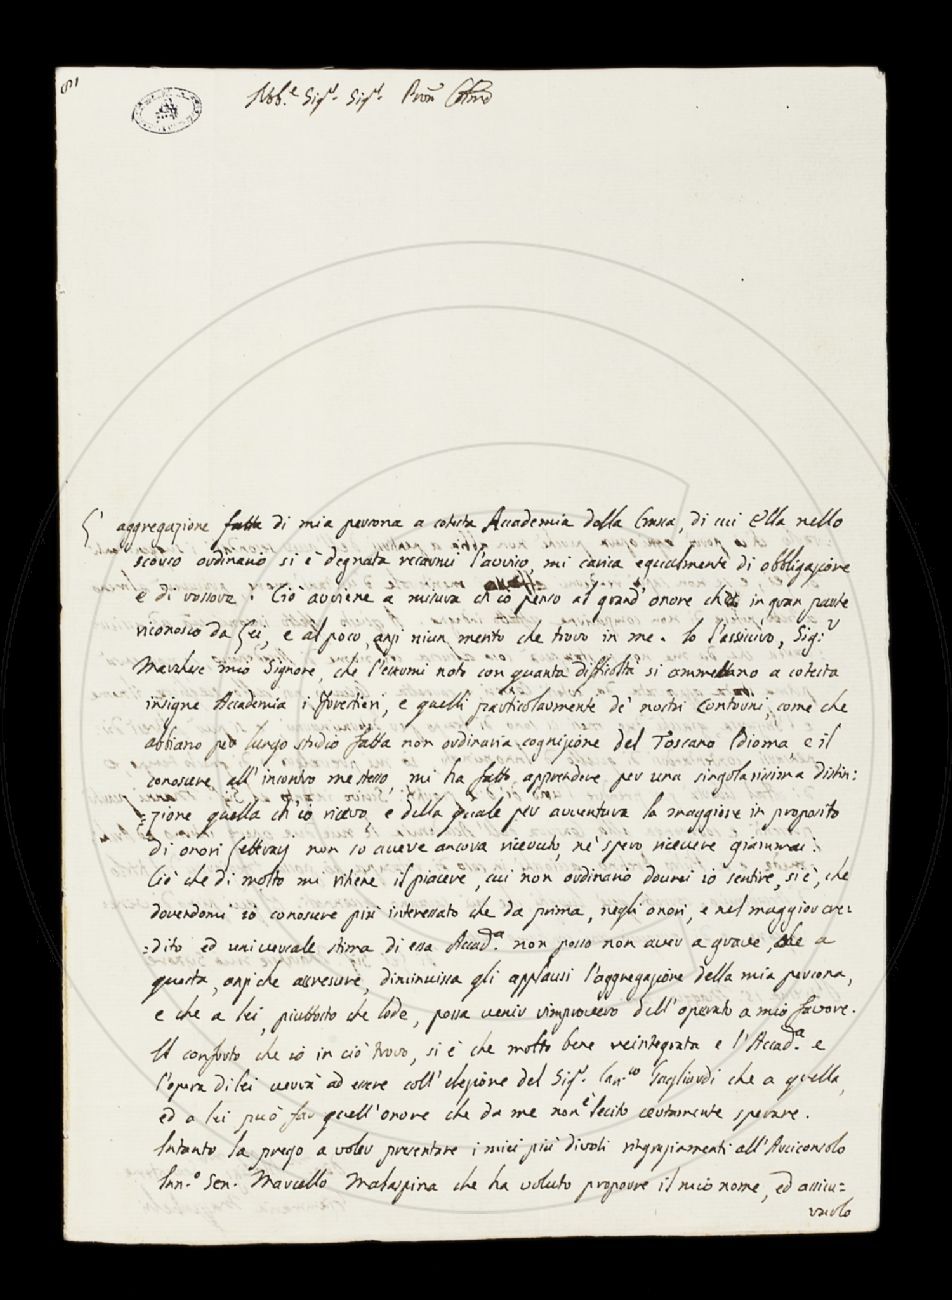 Nob.e Sig.r Sig.r Pron Colmo
L' aggregazione fatta di mia persona a cotesta Accademia della Crusca, di cui Ella nello
scorso ordinario si è degnata recarmi l'avviso, mi carica egualmente di obbligazione
e di rossore. Ciò avviene a misura ch'io penso al grand' onore che in gran parte
riconosco da Lei, e al poco, anzi niun merito che trovo in me. Io l'assicuro, Sig.r
Marchese mio Signore, che l'essermi noto con quanta difficoltà si ammettano a cotesta
insigne Accademia i Forestieri, e quelli particolarmente de' nostri contorni, come che
abbiano per lungo studio fatta non ordinaria cognizione del Toscano Idioma, e il
conoscere all' incontro me stesso, mi ha fatto apprendere per una singolarissima distin:
:zione quella ch'io ricevo, e della quale per avventura la maggiore in proposito
di onori Letterarj non so avere ancora ricevuto, nè spero ricevere giammai.
Ciò che di molto mi ritiene il piacere, cui non ordinario dovrei io sentire, si è, che
dovendomi io conoscere più interessato che da prima, negli onori, e nel maggior cre:
:dito ed universale stima di essa Accad.a non posso non aver a grave, che a
questa, anziche accrescere, diminuissa gli applausi l'aggregazione della mia persona,
e che a lei, piuttosto che lode, possa venir rimprovero dell' operato a mio favore.
Il conforto che io in ciò trovo, si è che molto bene reintegrata e l'Accad.a e
l'opera di lei verrà ad essere coll' elezione del Sig.r Can.co Gagliardi che a quella,
ed a lei può far quell' onore che da me non è lecito certamente sperare.
Intanto la prego a voler presentare i miei più divoti ringraziamenti all' Arciconsolo
Sen.r Marcello Malaspina che ha voluto proporre il mio nome, ed assicu=
rarlo